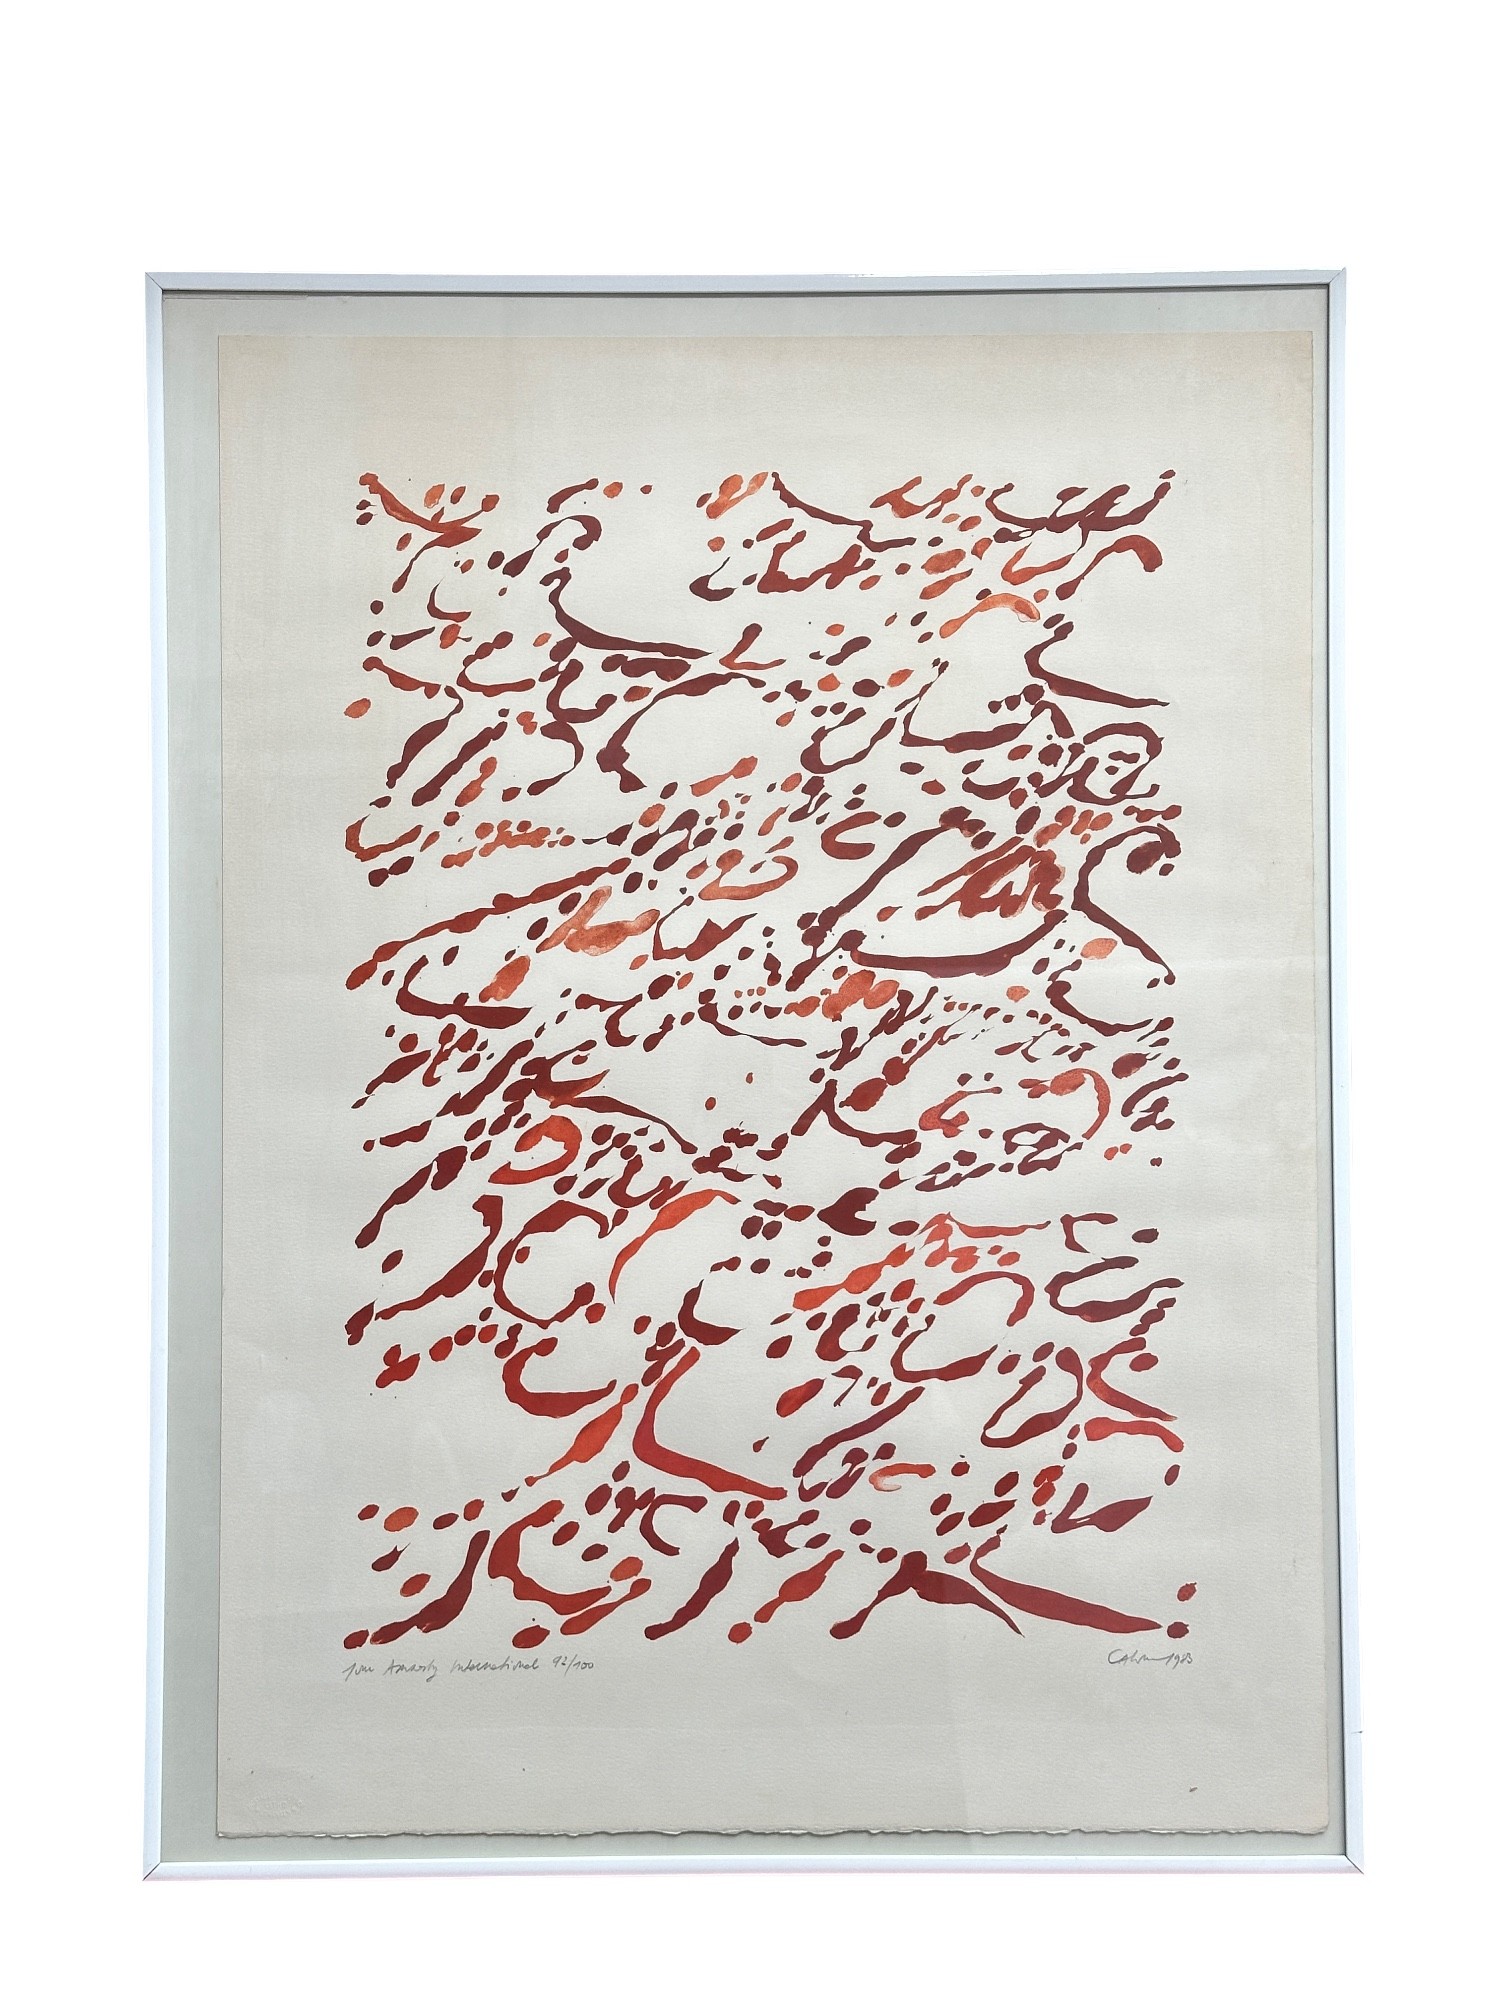 pour Amnesty International 92/100
1983